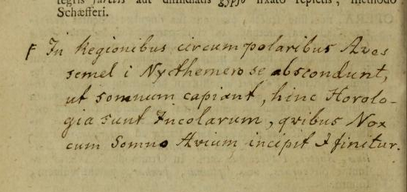 tegris partis aut dimidiatis gypso fixato repletis, methodo
Schæfferi.
F In Regionibus circumpolaribus Aves
semel i Nycthemero se abscondunt,
ut somnum capiant, hinc Horolo-
gia sunt Incolarum, qvibus Nox
cum Somno Avium incipit & finitur.